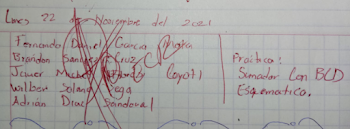 Lunes 22 de Noviembre del 2021
Fernando Daniel Garcia
Brandon Sanchez Cruz
Javier Michel Coyotl
Wilber Solano
Adrián Diaz Sandoval
Práctica:
Sumador Con BCD
Esquematico.